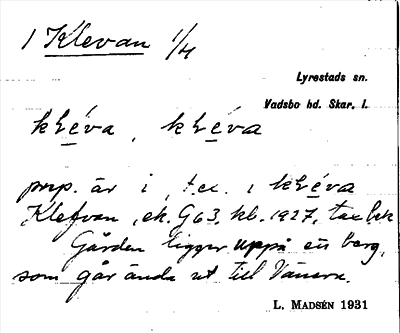 1 Klevan 1/4
Lyrestads sn.
Vadsbo hd. Skar. l.
kléva, kléva
prep. är i, t.ex. i kléva
Klefvan, ek. G 63, kb. 1927, tax bek
Gården ligger uppå en berg,
som går ända ut till Vänern.
L. MADSÉN 1931